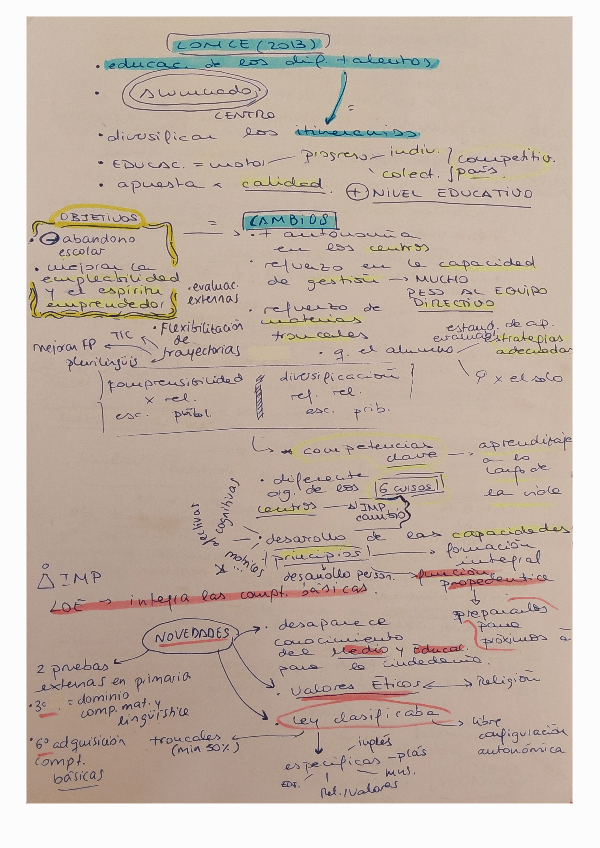 LOMCE (2013)
• educac. de los dif. talentos
• alumnado
CENTRO =
• diversificar los itinerarios
• EDUCAC. = motor progreso indiv. competitiv.
colect. país.
• apuesta x calidad. + NIVEL EDUCATIVO
OBJETIVOS = CAMBIOS
• - abandono escolar
• mejorar la empleabilidad
y el espíritu
emprendedor
• + autonomía
en los centros
• refuerzo en la capacidad
de gestión → MUCHO
PESO AL EQUIPO
DIRECTIVO
• evaluac.
externas
• refuerzo de
materias
troncales
• Flexibilización
de
trayectorias
TIC
mejorar FP
plurilingüis
• q. el alumno
estand. de ap.
evaluabl
estrategias
adecuadas
x el solo
comprensibilidad
x rel.
esc.
diversificación
ref. rel.
esc. prib.
* competencias
clave
aprendizaje
a lo
largo de
la vida
• diferente
org. de los 6 cursos
centros IMP
cambio
afectivas
cognitivas
motrices
• desarollo de las capacidades
principios → formación
integral
desarollo person. función
propedeutica
IMP
LOE → integra las compt. básicas.
prepararlos
para
próximos a
NOVEDADES
• desaparece
conocimiento
del Medio y Educac.
para la ciudadanía.
2 pruebas
externas en primaria
• 3º = dominio
comp. mat. y
lingüística
• 6º adquisición
compt.
básicas
• Valores Eticos ↔ Religión
• Ley clasificaba
libre
configuración
autonómica
troncales
(min 50%)
especificas
inglés
plás
mus.
Rel./valores